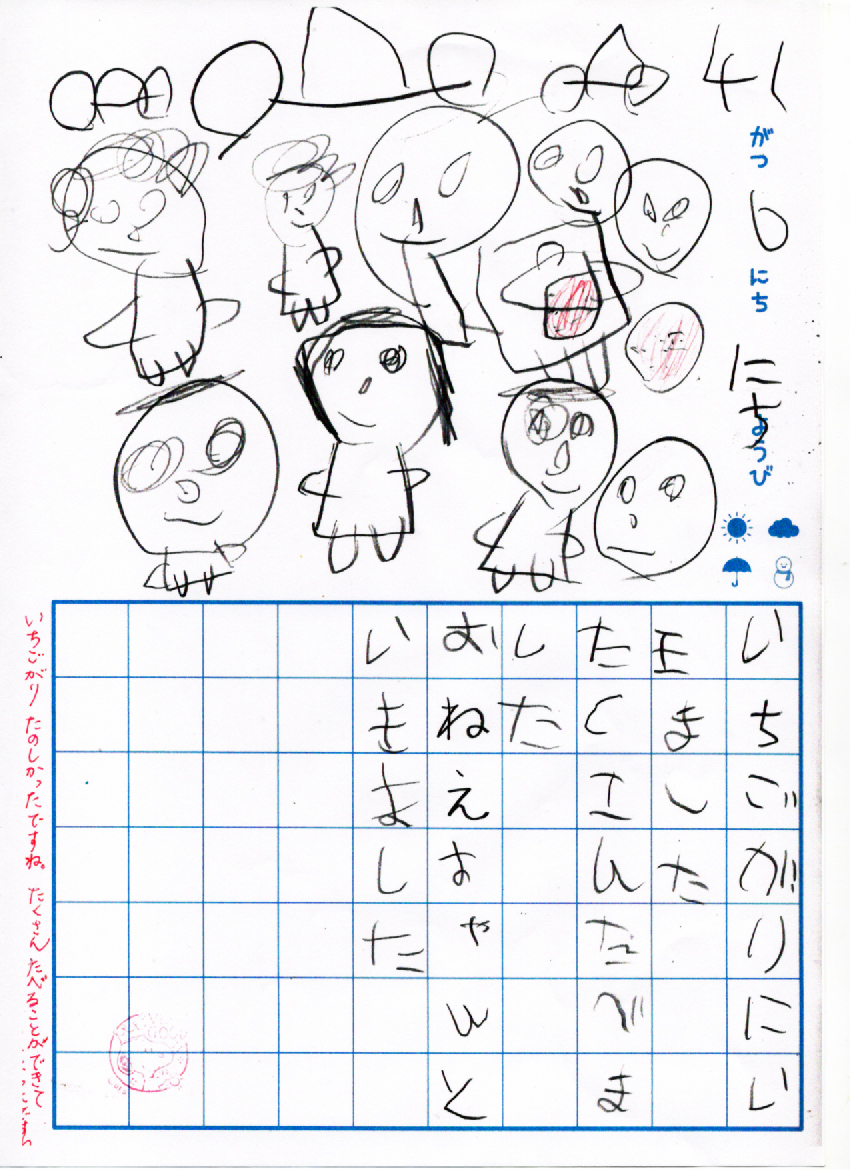 41がつ6にち にちようび
いちごがりにい
きました
たくさんたべま
した
おねえちゃんと
いきました
いちごがり たのしかったですね。たくさん たべることが できて